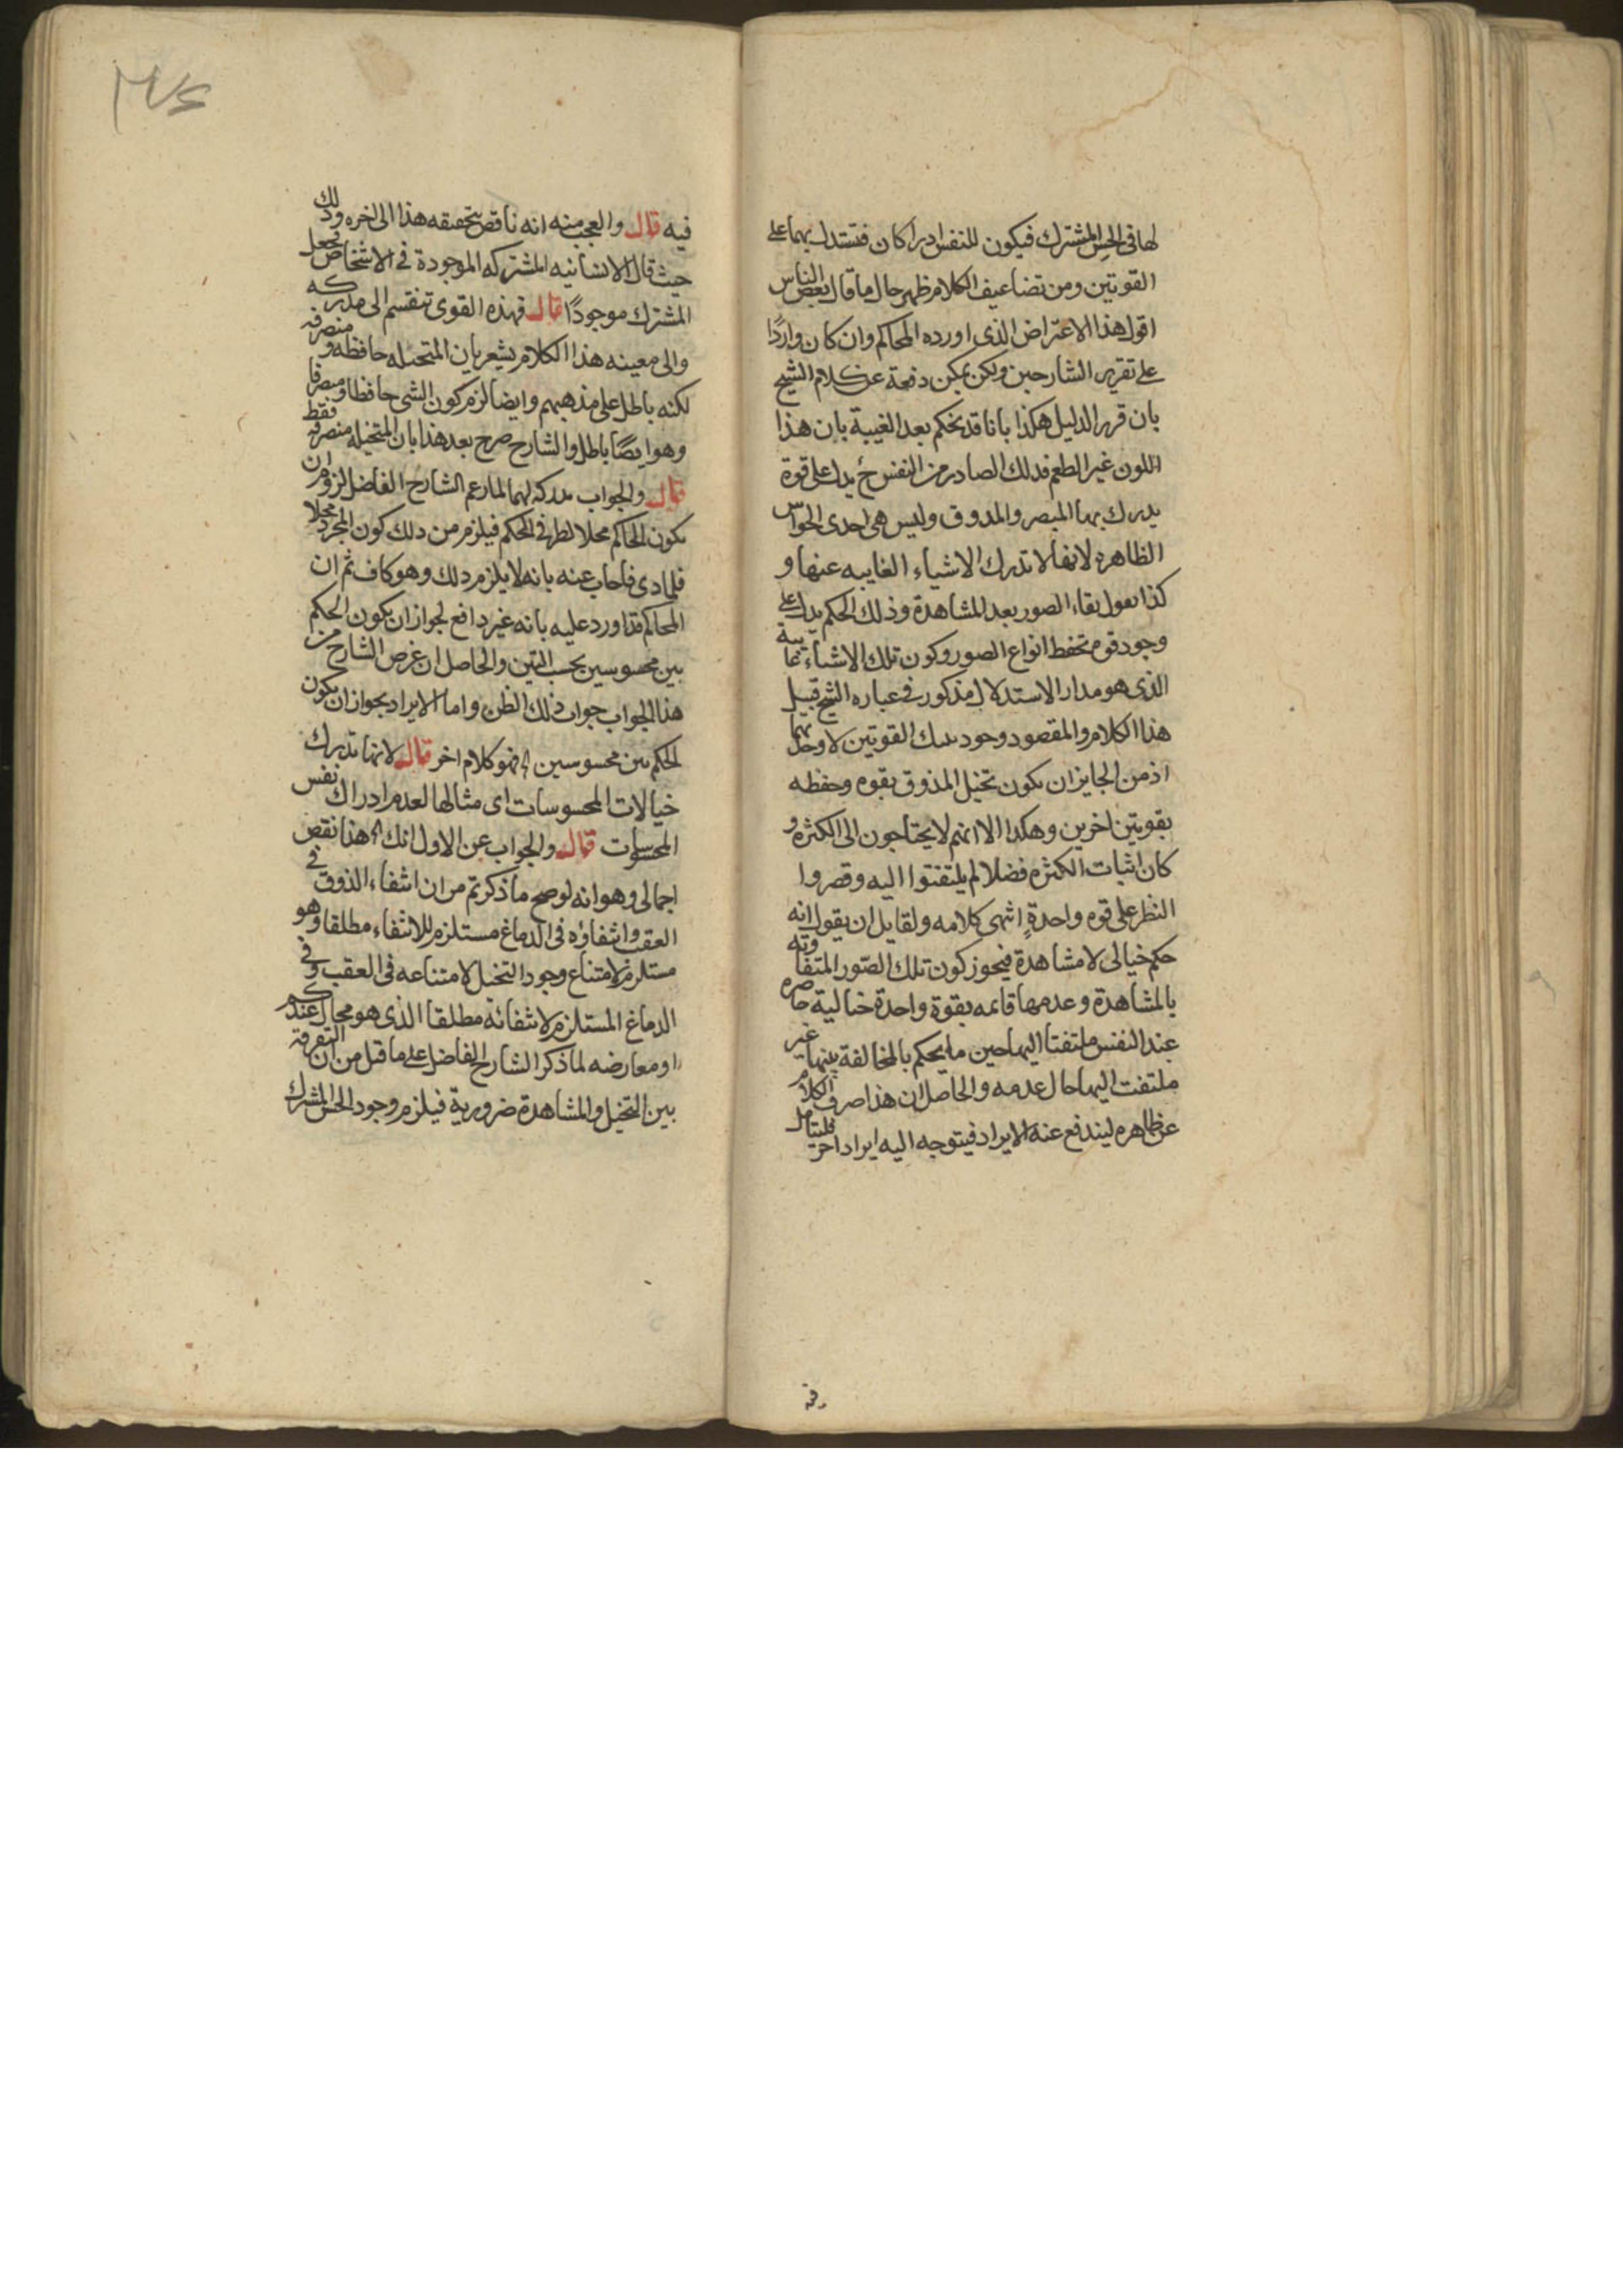 لها فى الحس المشترك فيكون للنفس ادراكان فتستدل بهما على
القوتين ومن تضاعيف الكلام ظهر حال ما قال بعض الناس
اقول هذا الاعتراض الذى اورده المحاكم وان كان واردًا
على تقرير الشارحين ولكن يمكن دفعه عن كلام الشيخ
بان قرر الدليل هكذا بانا قد نحكم بعد الغيبة بان هذا
اللون غير الطعم فذلك الصادر من النفس ح يدل على قوة
يدرك بها المبصر والمذوق وليس هى احدى الحواس
الظاهرة لانها لا تدرك الاشياء الغايبه عنها و
كذا نقول بقاء الصور بعد المشاهدة وذلك الحكم يدل على
وجود قوه تحفظ انواع الصور وكون تلك الاشياء غايبة
الذى هو مدار الاستدلال مذكور فى عباره الشيخ قبيل
هذا الكلام والمقصود وجود تينك القوتين لا وحدتهما
اذ من الجايز ان يكون تخيل المذوق بقوه وحفظه
بقوتين اخرين وهكذا الا انهم لا يحتاجون الى الكثره و
كان اثبات الكثره فضلا لم يلتفتوا اليه وقصروا
النظر على قوه واحدةٍ انتهى كلامه ولقايل ان يقول انه
حكم خيالى لا مشاهدة فيجوز كون تلك الصّور المتفاوته
بالمشاهدة وعدمها قايمه بقوة واحدة خيالية حاضره
عند النفس ملتفتا اليها حين ما يحكم بالمخالفة بينها غير
ملتفت اليها حال عدمه والحاصل ان هذا صرف الكلام
عن ظاهره ليندفع عنه الايراد فيتوجه اليه ايراد اخر فليتامل
فيه قال والعجب منه انه ناقض تحقيقه هذا الى اخره وذلك
حيث قال الانسانيه المشتركه الموجودة فى الاشخاص فجعل
المشترك موجودًا قال فهذه القوى تنقسم الى مدركه
والى معينه هذا الكلام يشعر بان المتخيله حافظه ومتصرفه
لكنه باطل على مذهبهم وايضا لزم كون الشى حافظا ومتصرفا
وهو ايضًا باطل والشارح صرح بعد هذا بان المتخيله متصرفه فقط
قال والجواب مدركه لهما لما زعم الشارح الفاضل لزوم ان
يكون الحاكم محلا لطرفى الحكم فيلزم من ذلك كون المجرد محلا
للمادى فاجاب عنه بانه لا يلزم ذلك وهو كاف ثم ان
المحاكم قد اورد عليه بانه غير دافع لجواز ان يكون الحكم
بين محسوسين بحسب التين والحاصل ان غرض الشارح من
هذا الجواب جواب ذلك الظن واما الايراد بجواز ان يكون
الحكم بين محسوسين الخ فهو كلام اخر قال لانها تدرك
خيالات المحسوسات اى مثالها لعدم ادراك نفس
المحسوسات قال والجواب عن الاول انك الخ هذا نقض
اجمالى وهو انه لو صح ما ذكرتم من ان انتفاء الذوق فى
العقب وانتفاؤه فى الدماغ مستلزم للانتفاء مطلقا وهو
مستلزم لامتناع وجود التخيل لامتناعه فى العقب وفى
الدماغ المستلزم لانتفائه مطلقا الذى هو محال عندكم
او معارضه لما ذكر الشارح الفاضل على ما قبل من ان التفرقه
بين التخيل والمشاهدة ضرورية فيلزم وجود الحس المشترك